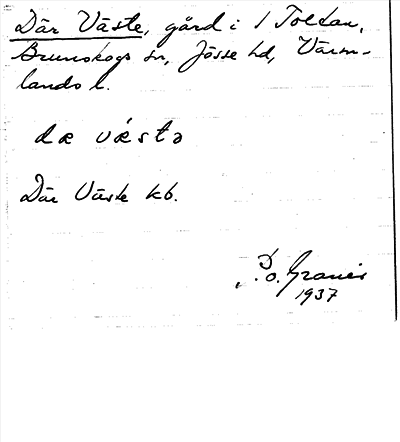 Där Väste, gård i 1 Toltan,
Brunskogs sn, Jösse hd, Värm-
lands l.
dæ vǽstə
Där Väste kb.
P.o. Granér
1937